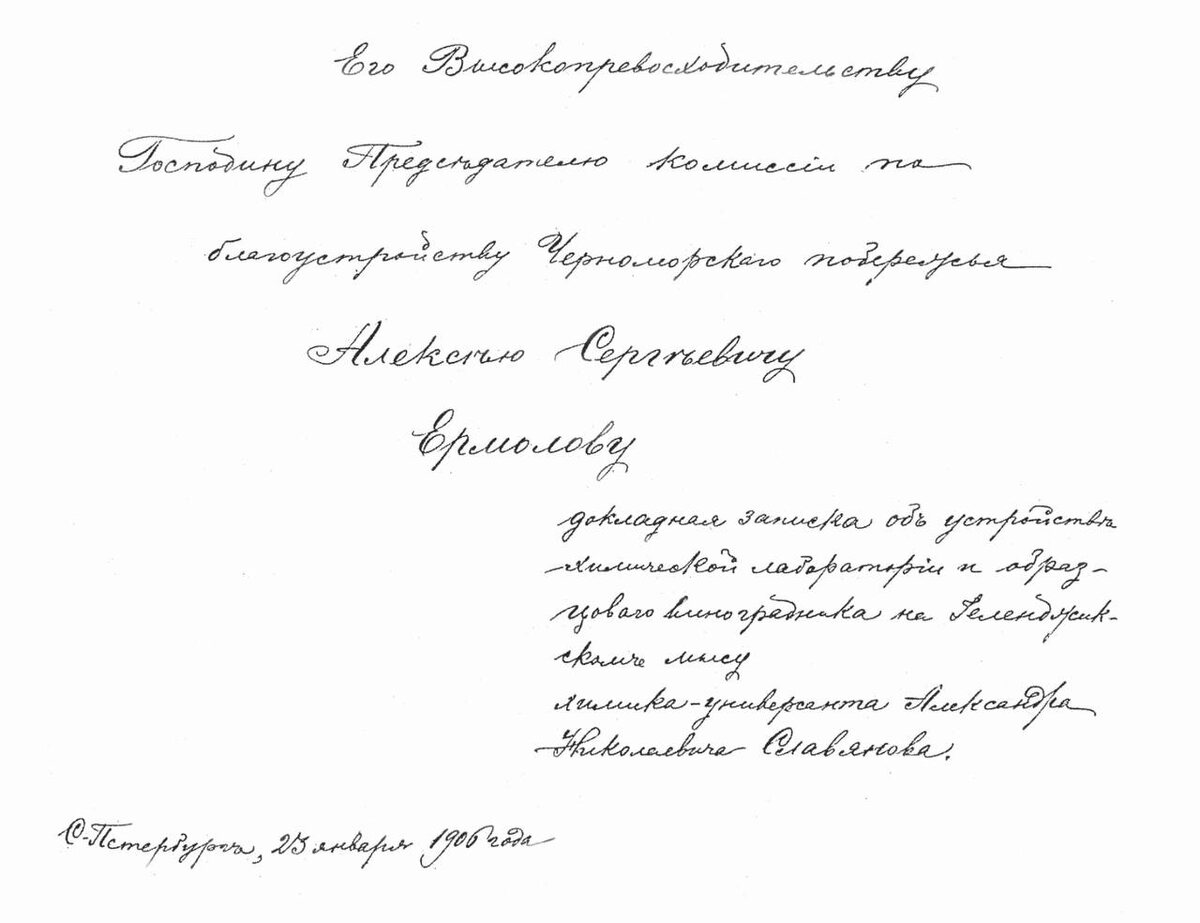 Его Высокопревосходительству
Господину Предсѣдателю комиссіи по
благоустройству Черноморскаго побережья
Алексѣю Сергѣевичу
Ермолову
докладная записка объ устройствѣ
химической лабораторіи и образ-
цоваго виноградника на Геленджик-
скомъ мысу
химика-универсанта Александра
Николаевича Славянова.
С-Петербургъ, 23 января 1906 года